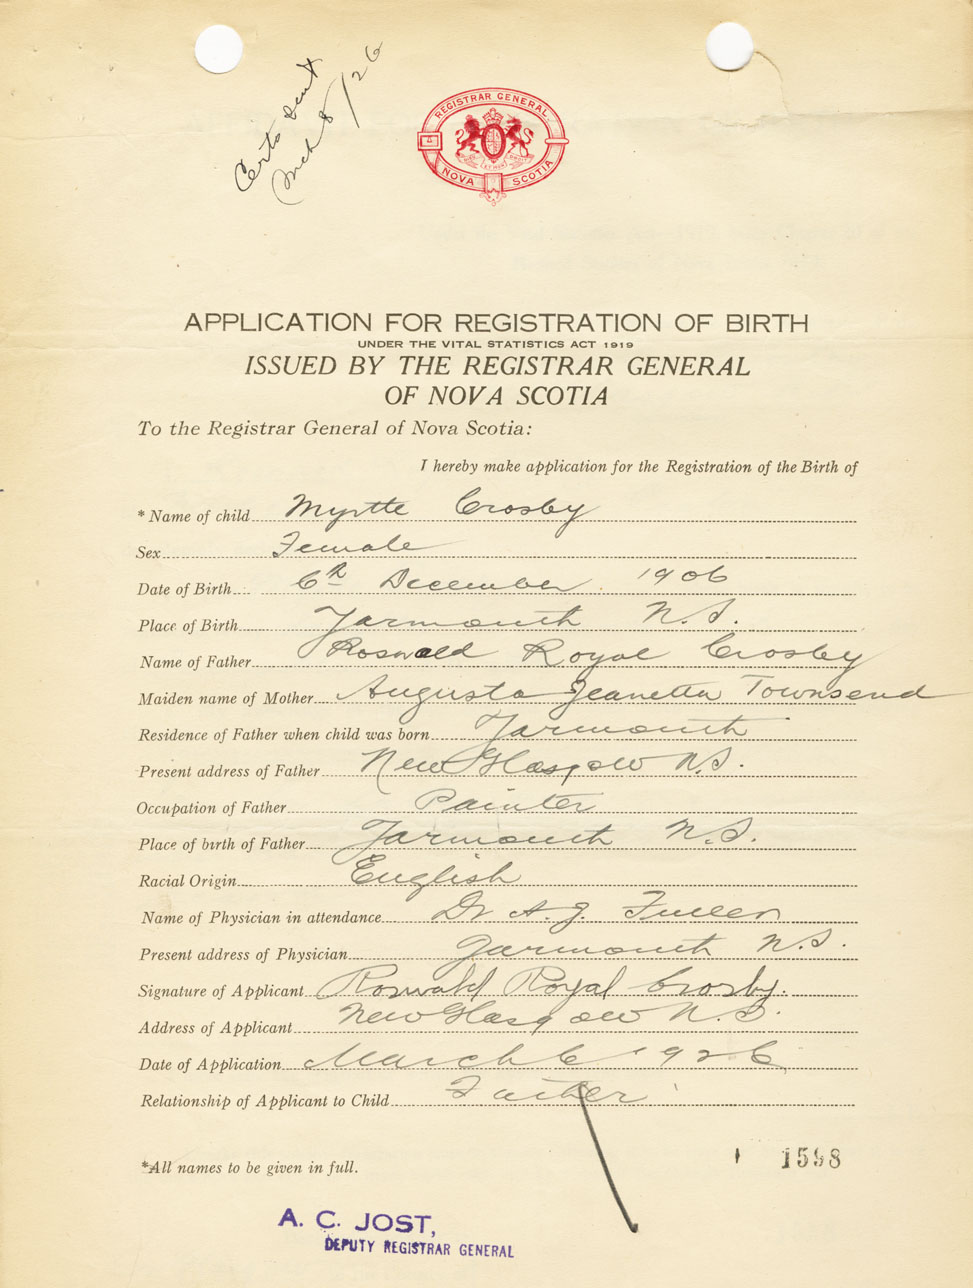 Certs Sent
Mch 8/26
REGISTRAR GENERAL
NOVA SCOTIA
APPLICATION FOR REGISTRATION OF BIRTH
UNDER THE VITAL STATISTICS ACT 1919
ISSUED BY THE REGISTRAR GENERAL
OF NOVA SCOTIA
To the Registrar General of Nova Scotia:
I hereby make application for the Registration of the Birth of
* Name of child Myrtle Crosby
Sex Female
Date of Birth 6th December 1906
Place of Birth Yarmouth N.S.
Name of Father Roswald Royal Crosby
Maiden name of Mother Augusta Jeanetta Townsend
Residence of Father when child was born Yarmouth
Present address of Father New Glasgow N.S.
Occupation of Father Painter
Place of birth of Father Yarmouth N.S.
Racial Origin English
Name of Physician in attendance Dr A. J. Fuller
Present address of Physician Yarmouth N.S.
Signature of Applicant Roswald Royal Crosby.
Address of Applicant New Glasgow N.S.
Date of Application March 6 1926
Relationship of Applicant to Child Father
*All names to be given in full.
1598
A. C. JOST,
DEPUTY REGISTRAR GENERAL